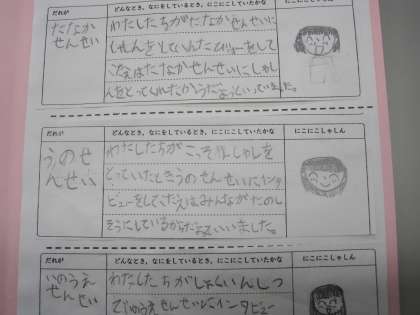 だれが
どんなとき、なにをしているとき、にこにこしていたかな
にこにこしゃしん
たなか
せんせい
わたしたちがたなかせんせいに
をして
たなかせんせいにしゃし
んをとってくれたからだよっといっていました。
だれが
どんなとき、なにをしているとき、にこにこしていたかな
にこにこしゃしん
うのせ
んせい
わたしたちがこっそりしゃしんを
とっていたときうのせんせいにインタ
ビューをしていたえはみんながたのし
そうにしているからだよっていいました。
だれが
どんなとき、なにをしているとき、にこにこしていたかな
にこにこしゃしん
いのうえ
せんせい
わたしたちがしょくいんしつ
でいのうえせんせいにインタビュー